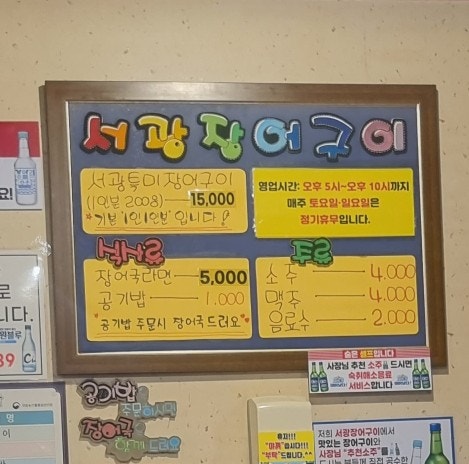 서광장어구이
서광특미장어구이
(1인분 200g) 15,000
*기본 "1인 1인분" 입니다!
영업시간: 오후 5시~오후 10시까지
매주 토요일·일요일은
정기휴무입니다.
식사류
장어국라면 5,000
공기밥 1.000
♥공기밥 주문시 장어국드려요♥
주류
소주 4.000
맥주 4.000
음료수 2.000
요!
로
니다.
89
명
이
공기밥
주문하시면
장어국
함께 드려요
술은 셀프입니다
사장님 추천 소주 드시면
숙취해소음료
서비스입니다
저희 서광장어구이에서
맛있는 장어구이와
사장님 "추천소주"를